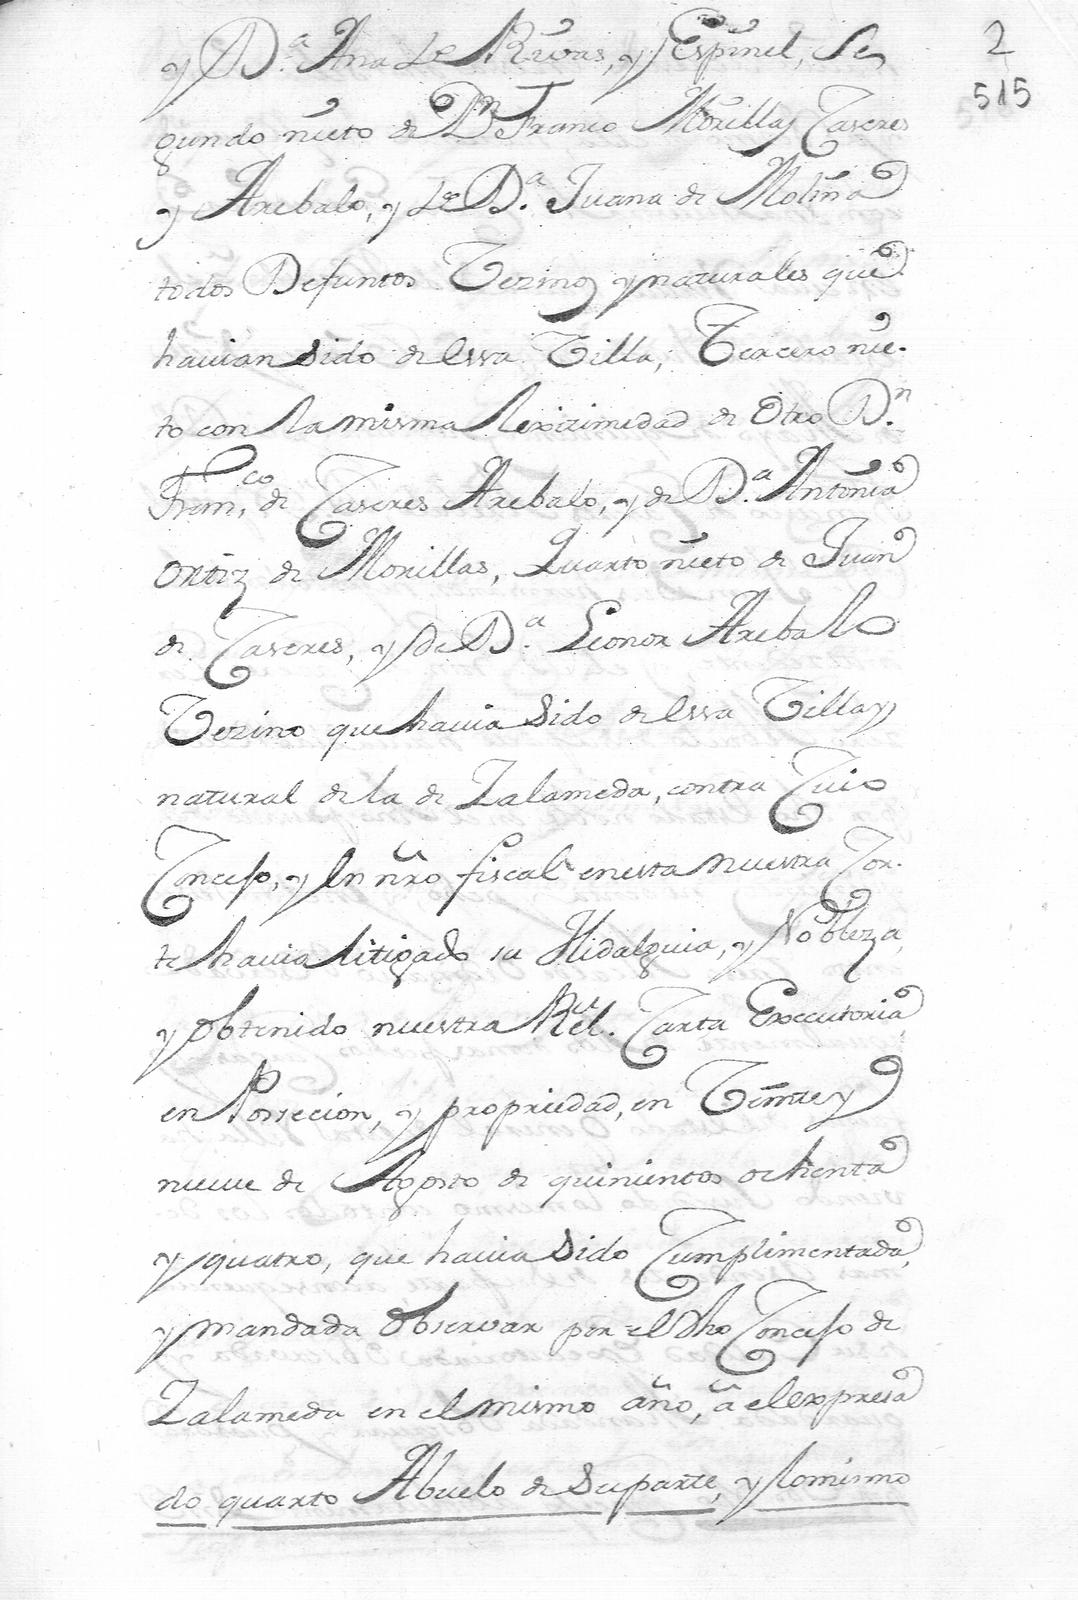 2
515
y D.ª Ana de Rivas, y Espinel, Se
gundo nieto de Dn Franco Morillas Taseres
y Arebalo, y de D.ª Juana de Molina
todos Defuntos Vezinos y naturales que
havian sido de essa Villa, Tercero nie-
to con la misma lexitimedad de Otro D.n
Fran,co de Taseres Arebalo, y de D.ª Antonia
Ortiz de Morillas, Quarto nieto de Juan
de Taseres, y de D.ª Leonor Arebalo
Vezino que havia sido de essa Villa y
natural de la de Zalameda, contra Cuio
Concejo, y en nro fiscal en esta nuestra Cor-
te havia litigado su Hidalguia, y Nobleza,
y obtenido nuestra Rel. Carta Executoria
en Possecion, y propriedad, en Veinte y
nueve de Agosto de quinientos ochenta
y quatro, que havia sido Cumplimentada,
y mandada observar por el dho Concejo de
Zalameda en el mismo año, â el expresa
do quarto Abuelo de su parte, y lo mismo